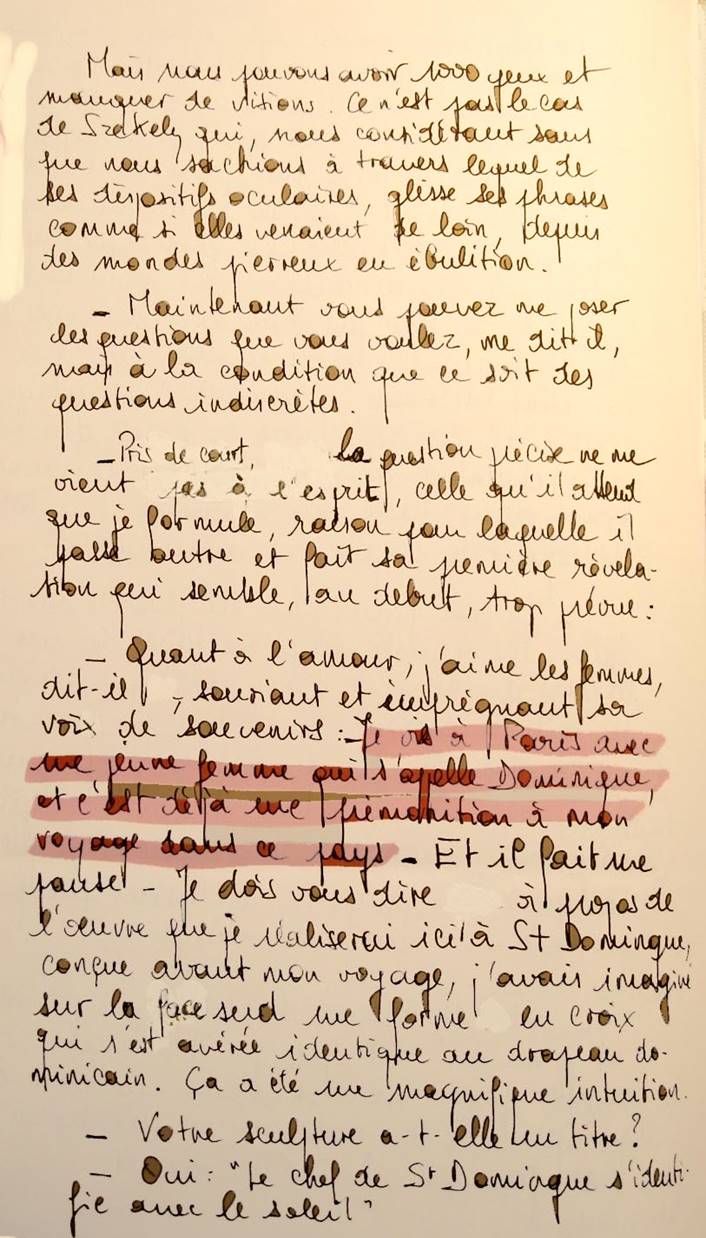 Mais nous pouvons avoir 1000 yeux et
manquer de visions. Ce n'est pas le cas
de Szekely qui, nous considérant sans
que nous sachions à travers lequel de
ses dispositifs oculaires, glisse ses phrases
comme si elles venaient de loin, depuis
des mondes pierreux en ébulition.
- Maintenant vous pouvez me poser
les questions que vous voulez, me dit il,
mais à la condition que ce soit des
questions indiscrètes.
- Pris de court, la question précise ne me
vient pas à l'esprit, celle qu'il attend
que je formule, raison pour laquelle il
passe outre et fait sa première révéla-
tion qui semble, au debut, trop prévue:
- Quant à l'amour, j'aime les femmes,
dit-il, souriant et imprégnant sa
voix de souvenirs: - Je vis à Paris avec
une jeune femme qui s'apelle Dominique,
et c'est déjà une prémonition à mon
voyage dans ce pays - Et il fait une
pause - Je dois vous dire à propos de
l'oeuvre que je réaliserai ici à St Domingue,
conçue avant mon voyage, j'avais imaginé
sur la face sud une forme en croix
qui s'est avérée identique au drapeau do-
minicain. Ça a été une magnifique intuition.
- Votre sculpture a-t-elle un titre?
- Oui: "Le chef de St Domingue s'identi-
fie avec le soleil"